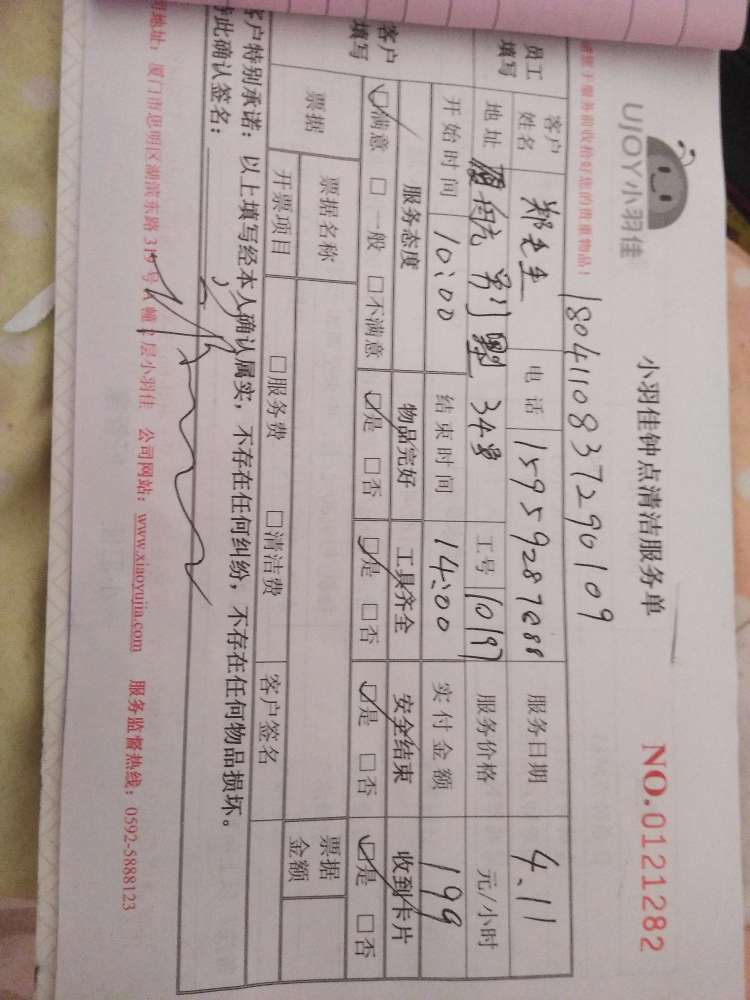 UJOY小羽佳
小羽佳钟点清洁服务单
NO.0121282
1804110837290109
请于服务前收拾好您的贵重物品！
员工填写
客户姓名 郑先生 电话 15959287088 服务日期 4.11
地址 别墅 34号 工号 10197 服务价格 元/小时
开始时间 10:00 结束时间 14:00 实付金额 199
客户填写
服务态度 物品完好 工具齐全 安全结束 收到卡片
☑满意 □一般 □不满意 ☑是 □否 ☑是 □否 ☑是 □否 ☑是 □否
票据 票据名称 票据金额
开票项目 □服务费 □清洁费 客户签名
客户特别承诺：以上填写经本人确认属实，不存在任何纠纷，不存在任何物品损坏。
特此确认签名：
地址：厦门市思明区湖滨东路319号A幢2层小羽佳 公司网站：www.xiaoyujia.com 服务监督热线：0592-5888123